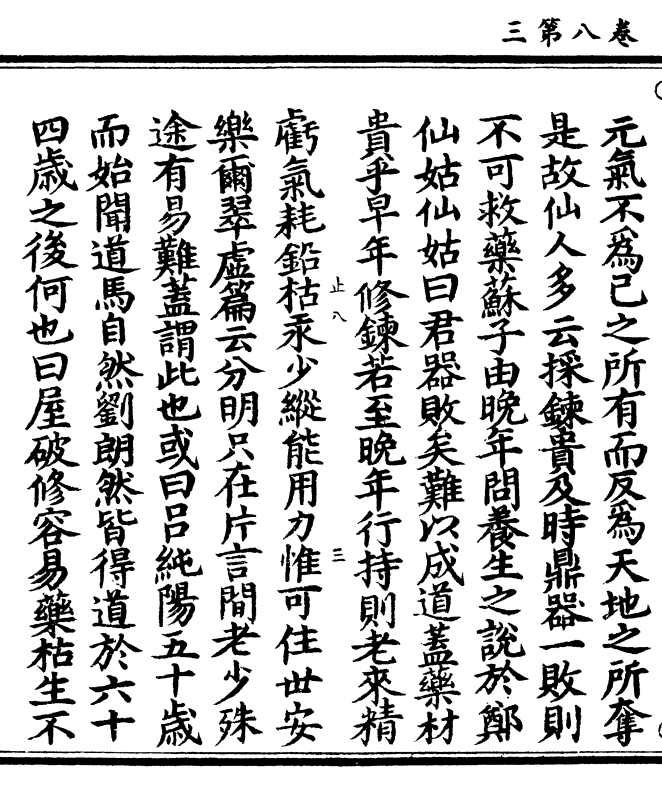 三第八卷
元氣不爲己之所有而反爲天地之所奪
是故仙人多云採鍊貴及時鼎器一敗則
不可救藥蘇子由晚年問養生之說於鄭
仙姑仙姑曰君器敗矣難以成道蓋藥材
貴乎早年修鍊若至晚年行持則老來精
止八
三
虧氣耗鉛枯汞少縱能用力惟可住世安
樂爾翠虛篇云分明只在片言間老少殊
途有易難蓋謂此也或曰呂純陽五十歲
而始聞道馬自然劉朗然皆得道於六十
四歲之後何也曰屋破修容易藥枯生不